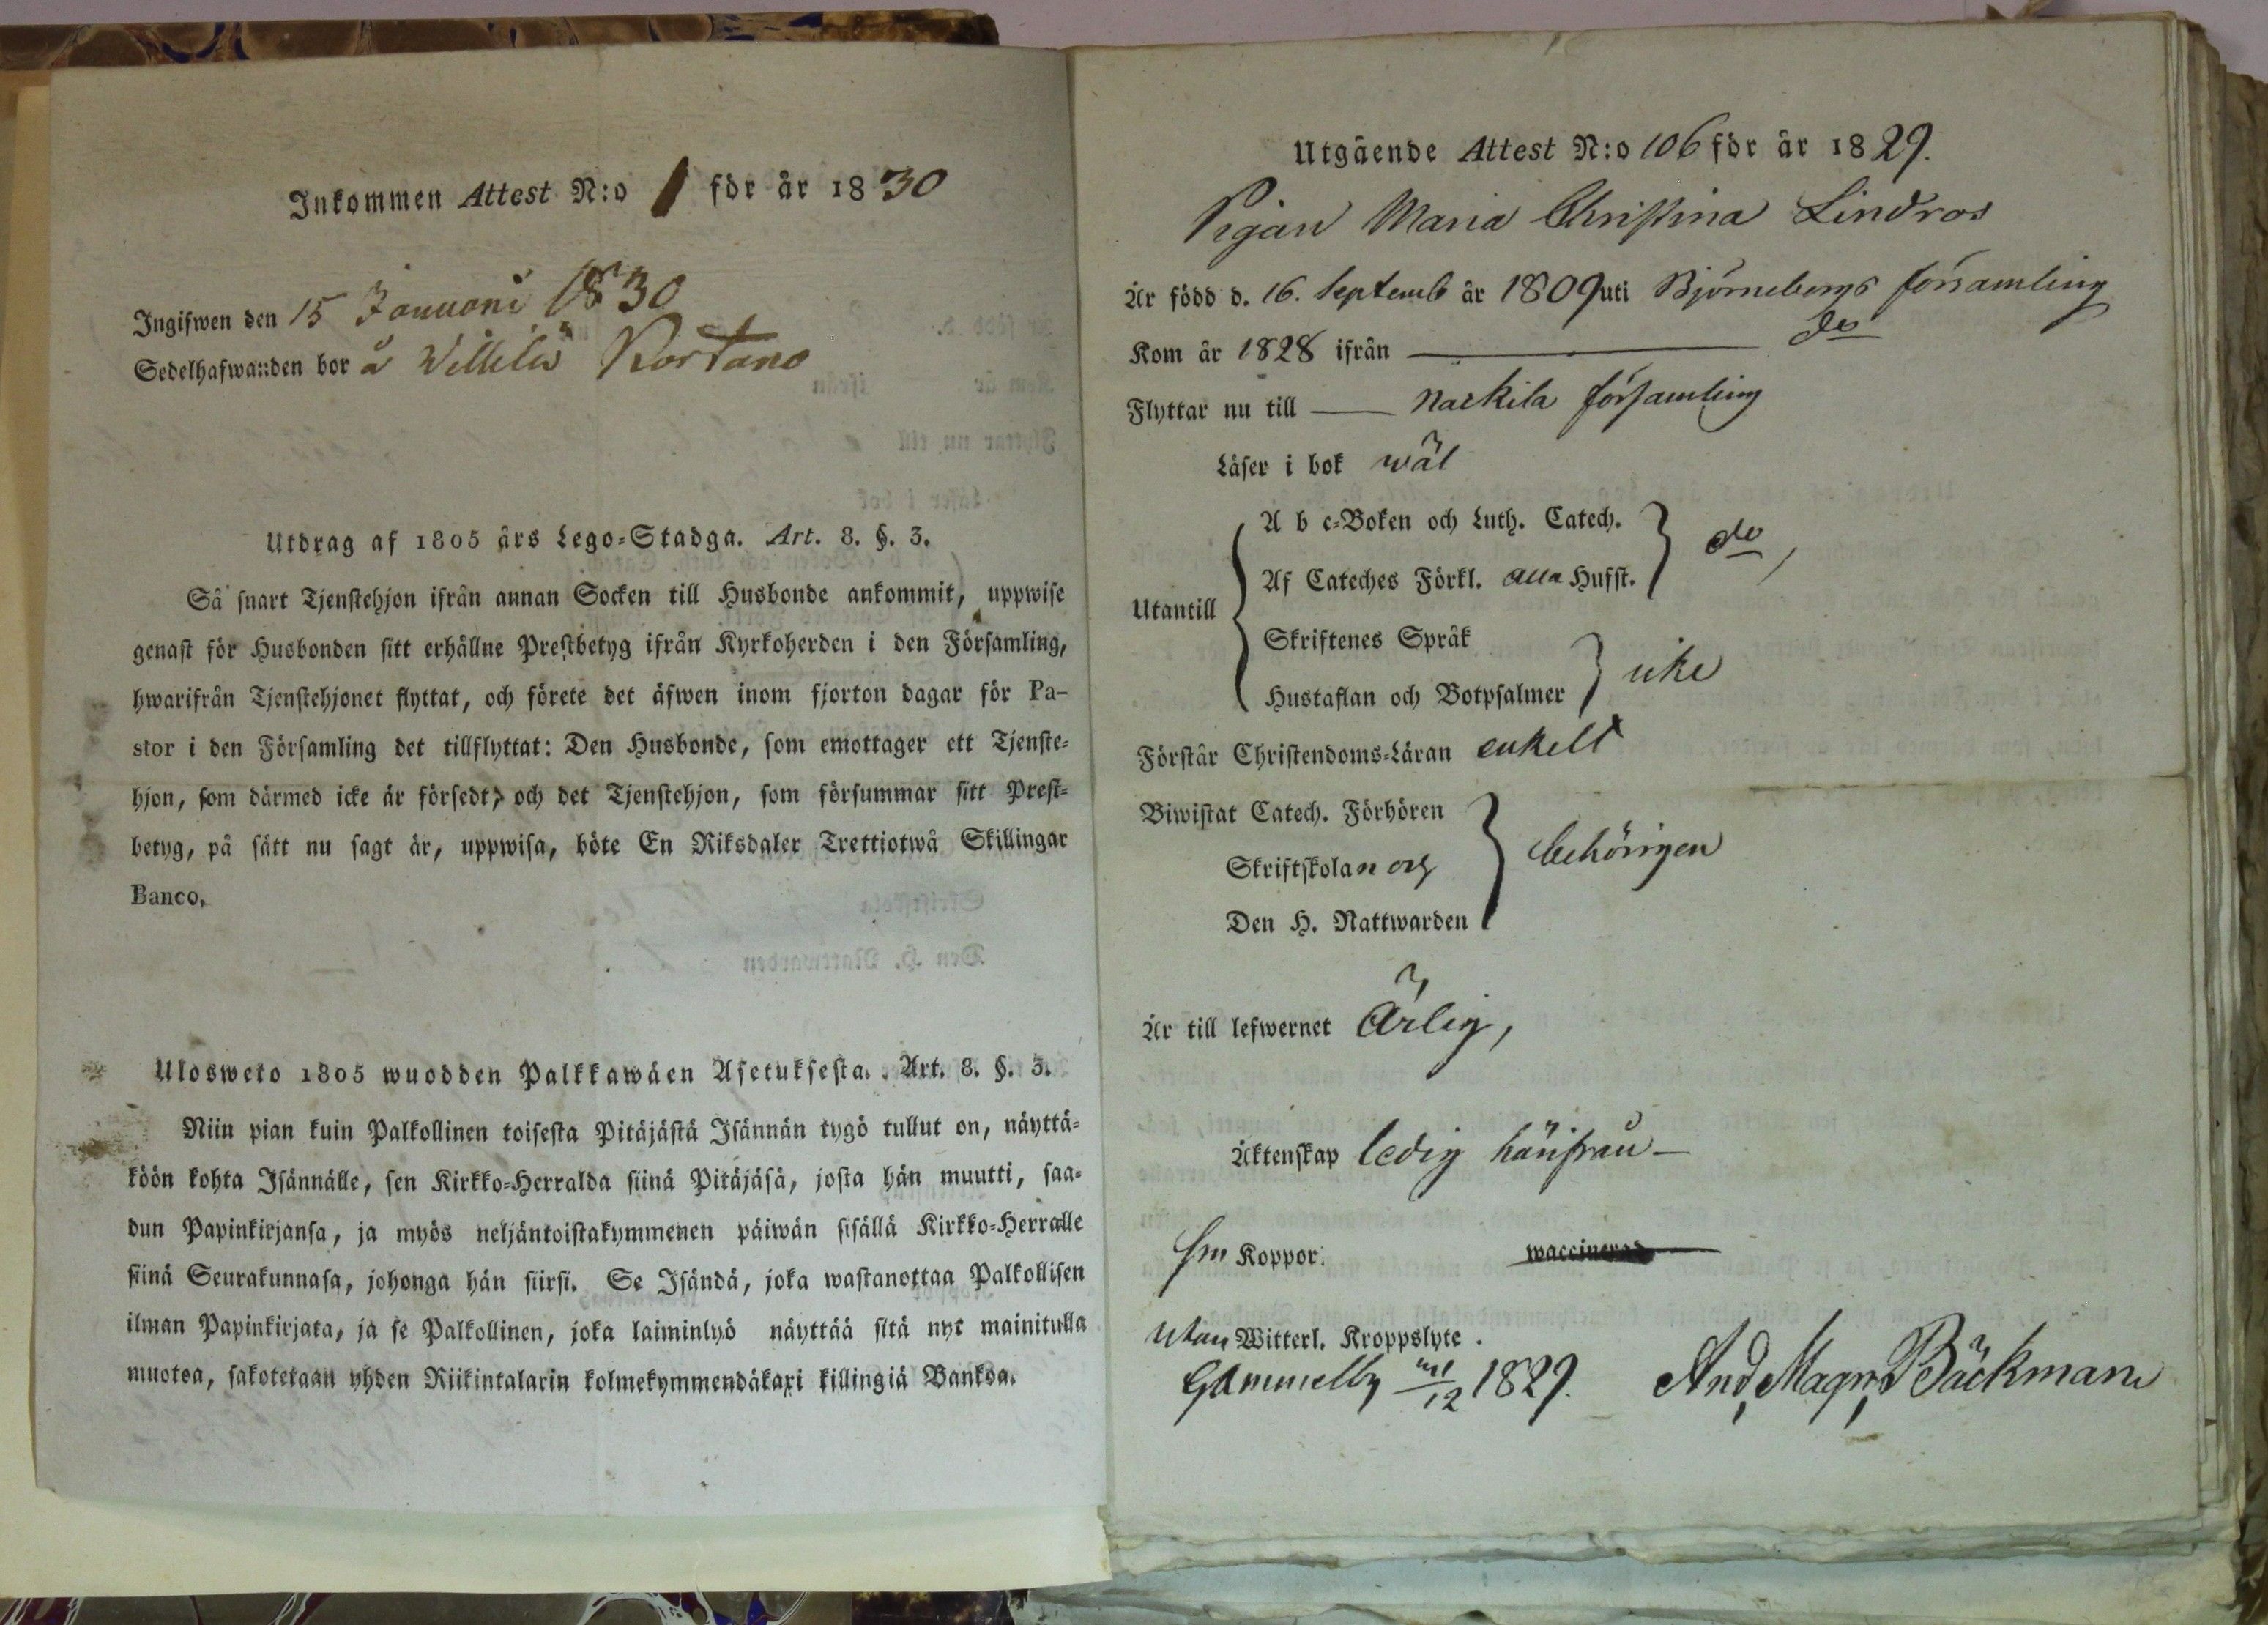 Inkommen Attest N:o 1 för år 1830
Ingifwen den 15 Januari 1830
Sedelhafwanden bor å Willilä Kortano
Utdrag af 1805 års Lego-Stadga. Art. 8. §. 3.
Så snart Tjenstehjon ifrån annan Socken till Husbonde ankommit, uppwise
genast för Husbonden sitt erhållne Prestbetyg ifrån Kyrkoherden i den Församling,
hwarifrån Tjenstehjonet flyttat, och förete det äfwen inom fjorton dagar för Pa-
stor i den Församling det tillflyttat: Den Husbonde, som emottager ett Tjenste-
hjon, som därmed icke är försedt, och det Tjenstehjon, som försummar sitt Prest-
betyg, på sätt nu sagt är, uppwisa, böte En Riksdaler Trettiotwå Skillingar
Banco.
Ulosweto 1805 wuodden Palkkawäen Asetuksesta. Art. 8. §. 3.
Niin pian kuin Palkollinen toisesta Pitäjästä Isännän tygö tullut on, näyttä-
köön kohta Isännälle, sen Kirkko-Herralda siinä Pitäjäsä, josta hän muutti, saa-
dun Papinkirjansa, ja myös neljäntoistakymmenen päiwän sisällä Kirkko-Herralle
siinä Seurakunnasa, johonga hän siirsi. Se Isändä, joka wastanottaa Palkollisen
ilman Papinkirjata, ja se Palkollinen, joka laiminlyö näyttää sitä nyt mainitulla
muotoa, sakotetaan yhden Riikintalarin kolmekymmendäkaxi killingiä Bankoa.
Utgående Attest N:o 106 för år 1829.
Pigan Maria Christina Lindros
Är född d. 16. Septemb år 1809 uti Björneborgs församling
Kom år 1828 ifrån — do
Flyttar nu till — Nackila församling
Läser i bok wäl
Utantill
A b c-Boken och Luth. Catech.
Af Cateches Förkl. alla Hufst.
do,
Skriftenes Språk
Hustaflan och Botpsalmer
icke
Förstår Christendoms-Läran enkelt
Biwistat Catech. Förhören
Skriftskolan och
Den H. Nattwarden
behörigen
Är till lefwernet Ärlig,
Äktenskap ledig härifrån —
Koppor. waccinerad
utan Witterl. Kroppslyte.
Gammelby 12 1829. And. Magn. Bäckman